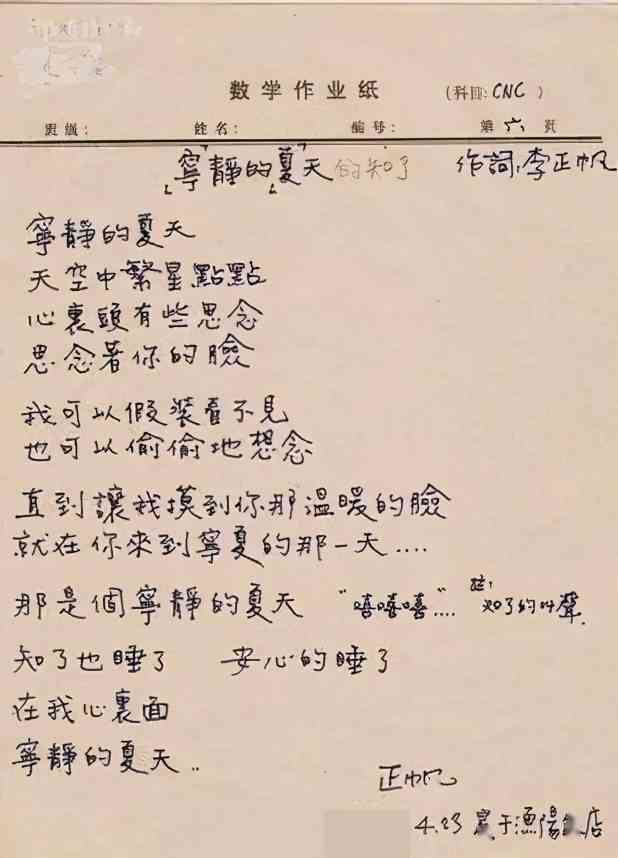 数学作业纸 (科目: CNC )
班级: 姓名: 编号: 第六页
「寧靜的「夏」天 的知了 作詞:李正帆
寧靜的夏天
天空中繁星點點
心裏頭有些思念
思念著你的臉
我可以假裝看不見
也可以偷偷地想念
直到讓我摸到你那溫暖的臉
就在你來到寧夏的那一天....
那是個寧靜的夏天 "嘻嘻嘻".... 註:知了的叫聲
知了也睡了 安心的睡了
在我心裏面
寧靜的夏天..
正帆
4.23 于漁陽飯店